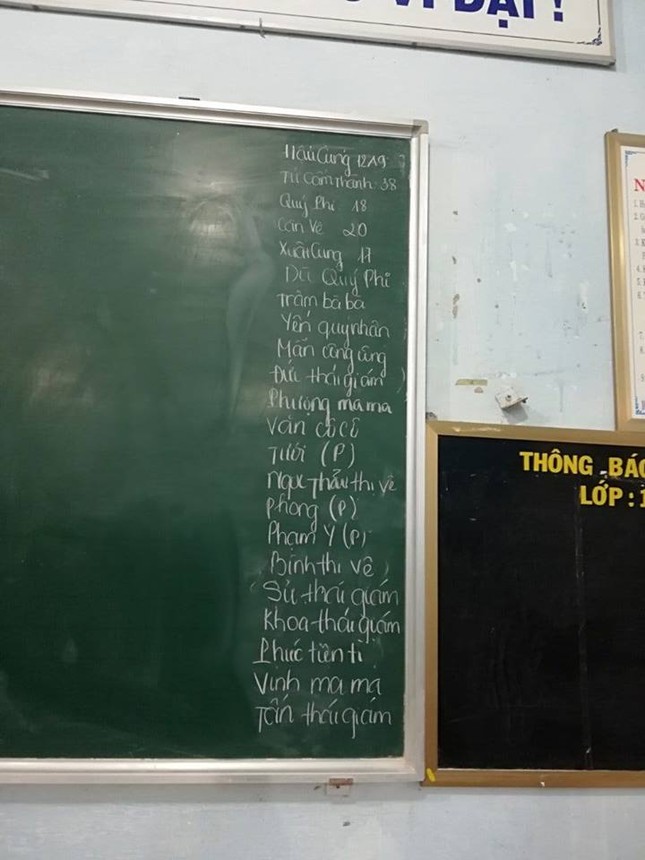 VĨ ĐẠI !
Hậu Cung 12A9
Tử Cấm Thành 38
Quý Phi 18
Cận Vệ 20
Xuân Cung 17
Dã Quý Phi
Trâm bà bà
Yến quý nhân
Mẫn công công
Đức thái giám
Phượng ma ma
Vân cô cô
Tươi (P)
Ngọc Thẩu thị vệ
Phong (P)
Phạm Ý (P)
Bình thị vệ
Sử thái giám
Khoa thái giám
Phúc tiên tỉ
Vinh ma ma
Tấn thái giám
THÔNG BÁO
LỚP : 1
N